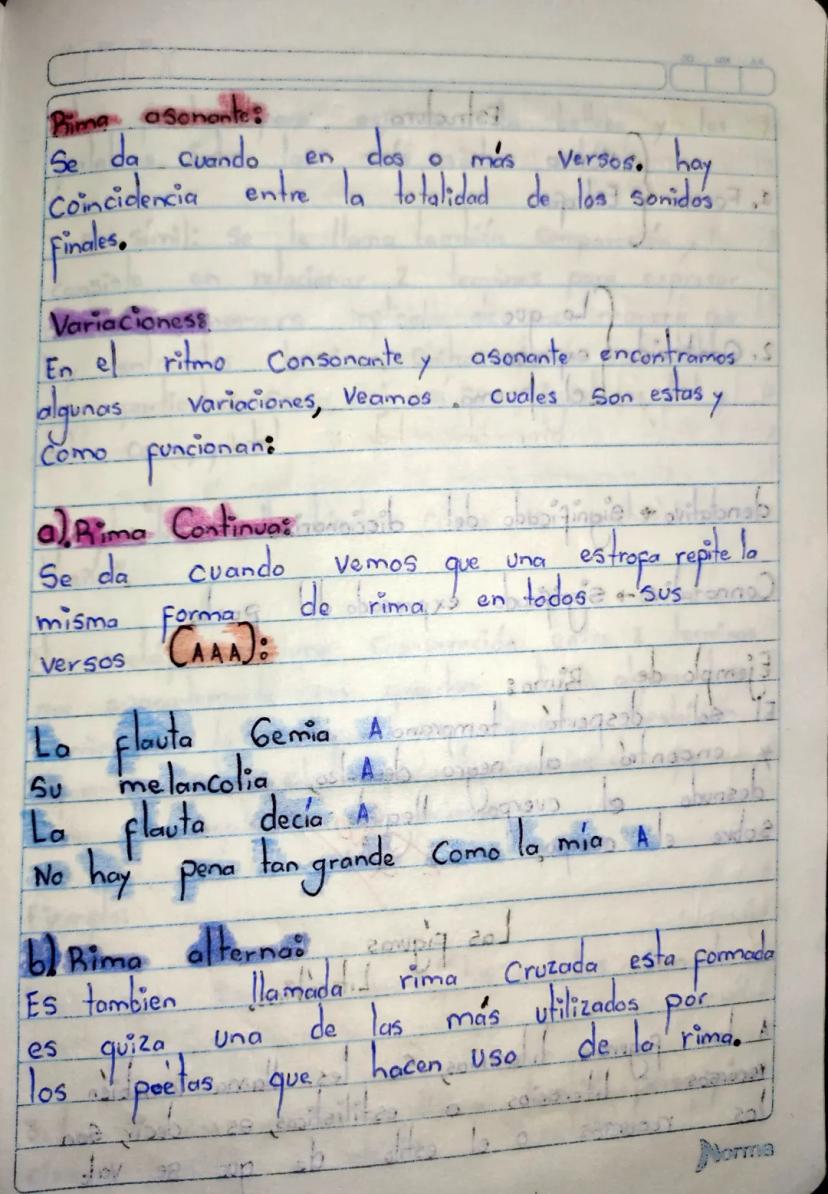 Rima asonante:
Se da cuando en dos o más versos. hay
coincidencia entre la totalidad de los sonidos
finales.
Variaciones:
En el ritmo consonante y asonante encontramos
algunas variaciones, Veamos. cuales son estas y
como funcionan:
a). Rima Continua:
Se da cuando vemos que una estrofa repite la
misma forma de rima en todos sus
versos (AAA):
La flauta Gemia A
Su melancolia A
La flauta decía A
No hay pena tan grande Como la mía A
b) Rima alterna:
Es tambien llamada rima Cruzada esta formada
es quiza una de las más utilizados por
los poetas que hacen uso de la rima.
Norma